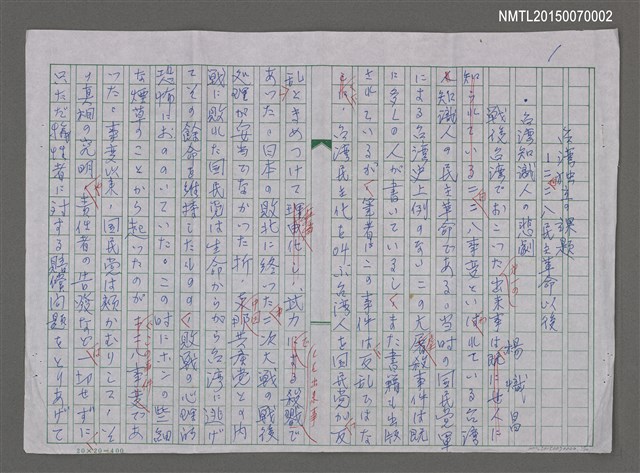 NMTL20150070002
1
台湾出立の課題
二二八民主革命以後
・台湾知識人の悲劇
楊熾昌
戦後台湾でおこった出来事は既に世人に
知られている二二八事変といわれている台湾
知識人の民主革命である。当時の国民党軍
による台湾史上例のないこの大屠殺事件は既
に多くの人が書いているし、また書籍も出版
されているが、筆者はこの事件は反乱ではな
く 台湾民主化を叫ぶ台湾人を国民党が反
乱ときめつけて 武力による殺戮で
あった。日本の敗北に終った二次大戦の戦後
処理が妥当でなかった折 共産党との内
戦に敗れた国民党は生命からがら台湾に逃げ
てその余命を維持したものの、敗戦の心理的
恐怖はおののいていた。この時にホンの些細
な煙草のことから起ったのが 二二八事変であ
った。事変以来、国民党は頬かむりして、そ
の真相の究明、責任者の告発など一切せずに
只ただ犠牲者に対する賠償問題をとりあげて
20×20=400